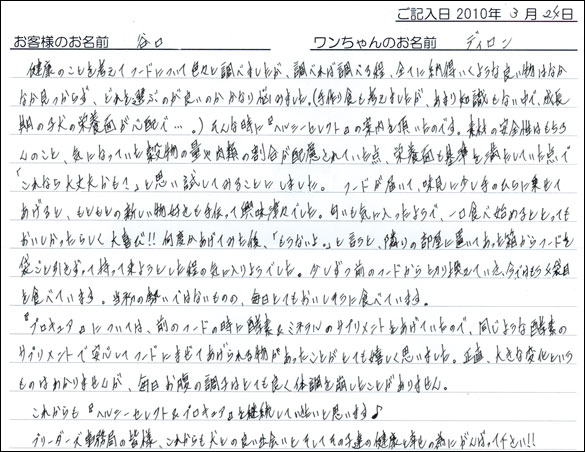 ご記入日 2010年 3月 24日
お客様のお名前 谷口 ワンちゃんのお名前 ディロン
健康のことを考えてフードについて色々と調べましたが、調べれば調べる程、全てに納得いくような良い物はなか
なか見つからず、どれを選ぶのが良いのかかなり悩みました。(手作り食も考えましたが、あまり知識もない中で、成長
期の子犬の栄養面が心配で…。)そんな時に『ヘルシーセレクト』の案内を頂いたのです。素材の安全性はもちろ
んのこと、気になっていた穀物の量や肉類の割合が配慮されていた点、栄養面も基準を満たしていた点で
「これなら大丈夫かも?」と思い試してみることにしました。 フードが届いて、味見に少し手のひらに乗せて
あげると、もともとの新しい物好きも手伝って興味津々でした。匂いも気に入ったようで、一口食べ始めるととっても
おいしかったらしく大喜び!!何度かあげてみた後、「もうないよ。」と言うと、隣りの部屋に置いてあった箱からフードを
袋ごと引きずって持って来ようとした程の気に入りようでした。少しずつ前のフードから切り換えていき、今ではもう 袋目
を食べています。当初の勢いではないものの、毎日とてもおいしそうに食べています。
『プロキュア』については、前のフードの時に酵素&ミネラルのサプリメントをあげていたので、同じような酵素の
サプリメントで安心してフードにまぜてあげられる物があったことがとても嬉しく思いました。正直、大きな変化という
ものはわかりませんが、毎日お腹の調子はとても良く体調を崩したことがありません。
これからも『ヘルシーセレクト&プロキュア』を継続していきたいと思います♪
ブリーダーズ事務局の皆様、これからも犬との良い出会いとそしてその子達の健康と幸せの為にがんばって下さい!!